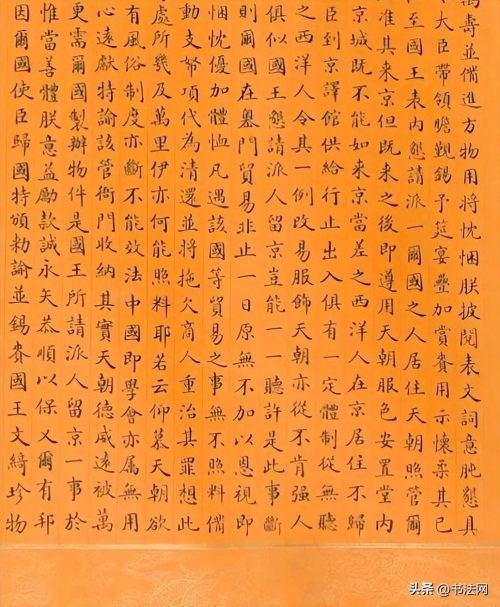 萬壽並備進方物用將忱悃朕披閱表文詞意肫懇具
大臣帶領瞻覲錫予筵宴疊加賞賚用示懷柔其已
至國王表內懇請派一爾國之人居住天朝照管爾
准其來京但既來之後即遵用天朝服色安置堂內
京城既不能如來京當差之西洋人在京居住不歸
臣到京譯館供給行止出入俱有一定體制從無聽
之西洋人令其一例改易服飾天朝亦從不肯強人
俱似國王懇請派人留京豈能一一聽許是此事斷
則爾國在嶴門貿易非止一日原無不加以恩視即
悃忱優加體恤凡遇該國等貿易之事無不照料備
動支帑項代為清還並將拖欠商人重治其罪想此
處所幾及萬里伊亦何能照料耶若云仰慕天朝欲
有風俗制度亦斷不能效法中國即學會亦属無用
心遠獻特諭該管衙門收納其實天朝德威遠被萬
更需爾國製辦物件是國王所請派人留京一事於
惟當善體朕意益勵款誠永矢恭順以保乂爾有邦
因爾國使臣歸國特頒勅諭並錫賚國王文綺珍物
头条 @书法网